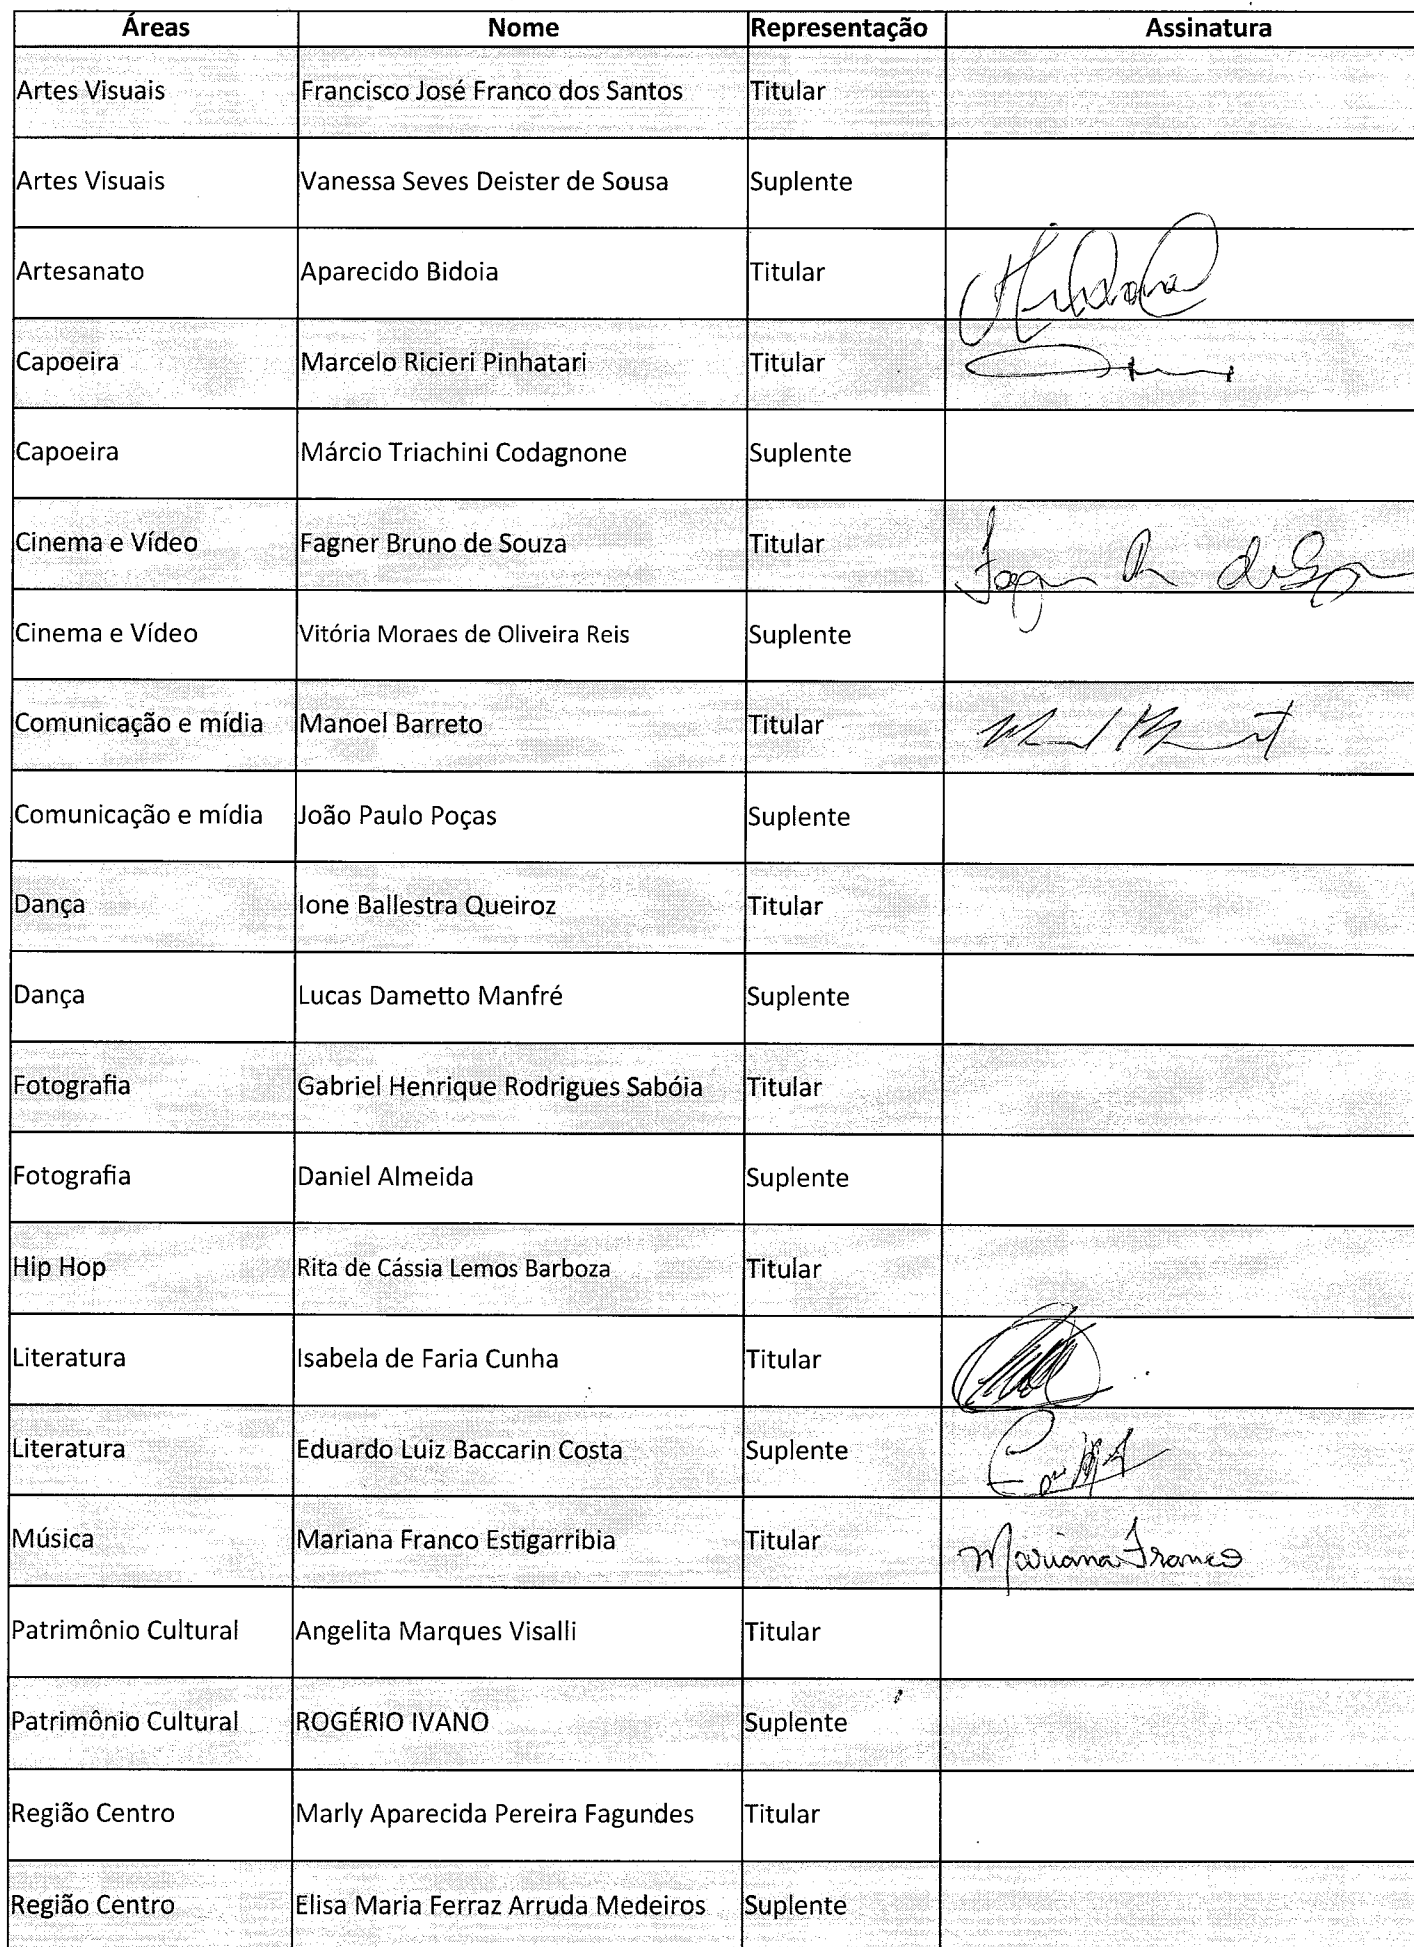 Áreas Nome Representação Assinatura
Artes Visuais Francisco José Franco dos Santos Titular
Artes Visuais Vanessa Seves Deister de Sousa Suplente
Artesanato Aparecido Bidoia Titular
Capoeira Marcelo Ricieri Pinhatari Titular
Capoeira Márcio Triachini Codagnone Suplente
Cinema e Vídeo Fagner Bruno de Souza Titular
Cinema e Vídeo Vitória Moraes de Oliveira Reis Suplente
Comunicação e mídia Manoel Barreto Titular
Comunicação e mídia João Paulo Poças Suplente
Dança Ione Ballestra Queiroz Titular
Dança Lucas Dametto Manfré Suplente
Fotografia Gabriel Henrique Rodrigues Sabóia Titular
Fotografia Daniel Almeida Suplente
Hip Hop Rita de Cássia Lemos Barboza Titular
Literatura Isabela de Faria Cunha Titular
Literatura Eduardo Luiz Baccarin Costa Suplente
Música Mariana Franco Estigarribia Titular Mariana Franco
Patrimônio Cultural Angelita Marques Visalli Titular
Patrimônio Cultural ROGÉRIO IVANO Suplente
Região Centro Marly Aparecida Pereira Fagundes Titular
Região Centro Elisa Maria Ferraz Arruda Medeiros Suplente